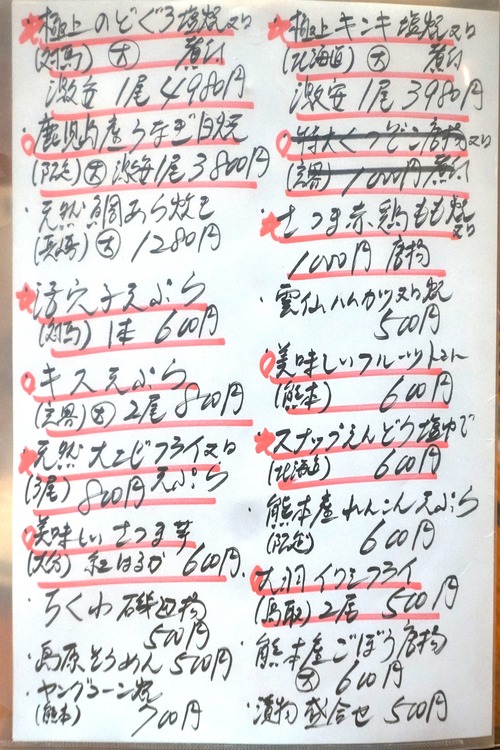 極上のどぐろ塩焼又は
(対馬) 大 煮付
激安 1尾 4980円
鹿児島産うなぎ白焼
(限定) 大 激安1尾 3800円
天然鯛あら炊き
(長崎) 大 1280円
活穴子天ぷら
(対馬) 1本 600円
キス天ぷら
大 2尾 800円
天然大エビフライ又は
(3尾) 800円 天ぷら
美味しいさつま芋
(大分) 紅はるか 600円
ちくわ磯辺揚
500円
島原そうめん 500円
ヤングコーン焼
(熊本) 700円
極上キンキ塩焼又は
(北海道) 大 煮付
激安 1尾 3980円
特大くつぞこ唐揚又は
1000円 煮付
さつま赤鶏もも焼又は
1000円 唐揚
雲仙ハムカツ又は焼
500円
美味しいフルーツトマト
(熊本) 600円
スナップえんどう塩ゆで
(北海道) 600円
熊本産れんこん天ぷら
(限定) 600円
大羽イワシフライ
(鳥取) 2尾 500円
熊本産ごぼう唐揚
大 600円
漬物盛合せ 500円